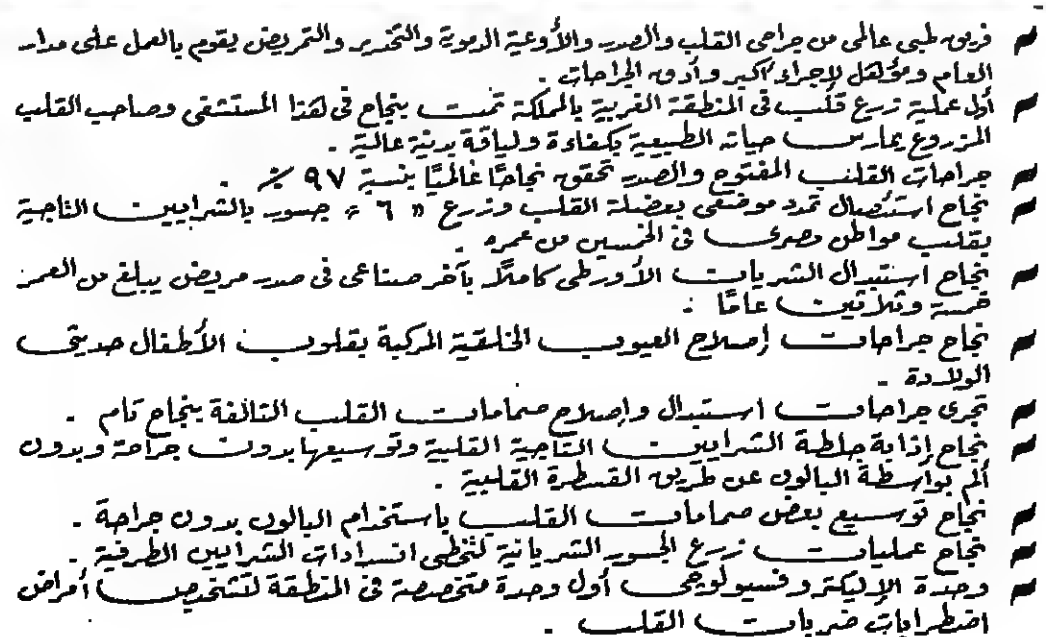 فريق طبي عالمي من جراحي القلب والصدر والأوعية الدموية والتخدير والتمريض يقوم بالعمل على مدار
العام ومؤهل لإجراء أكبر وأدق الجراحات .
أول عملية زرع قلب في المنطقة الغربية بالمملكة تمت بنجاح في هذا المستشفى وصاحب القلب
المزروع يمارس حياته الطبيعية بكفاءة ولياقة بدنية عالية .
جراحات القلب المفتوح والصدر تحقق نجاحًا عالميًا بنسبة ٩٧ ٪ .
نجاح استئصال تمدد موضعي بعضلة القلب وزرع « ٦ » جسور بالشرايين التاجية
بقلب مواطن مصري في الخمسين من عمره .
نجاح استبدال الشريان الأورطي كاملًا بآخر صناعي في صدر مريض يبلغ من العمر
خمسة وثلاثين عامًا :
نجاح جراحات إصلاح العيوب الخلقية المركبة بقلوب الأطفال حديثي
الولادة .
تجرى جراحات استبدال وإصلاح صمامات القلب التالفة بنجاح تام .
نجاح إذابة جلطة الشرايين التاجية القلبية وتوسيعها بدون جراحة وبدون
ألم بواسطة البالون عن طريق القسطرة القلبية .
نجاح توسيع بعض صمامات القلب باستخدام البالون بدون جراحة .
نجاح عمليات زرع الجسور الشريانية لتخطي انسدادات الشرايين الطرفية .
وحدة الإليكتروفسيولوجي أول وحدة متخصصة في المنطقة لتشخيص أمراض
اضطرابات ضربات القلب .